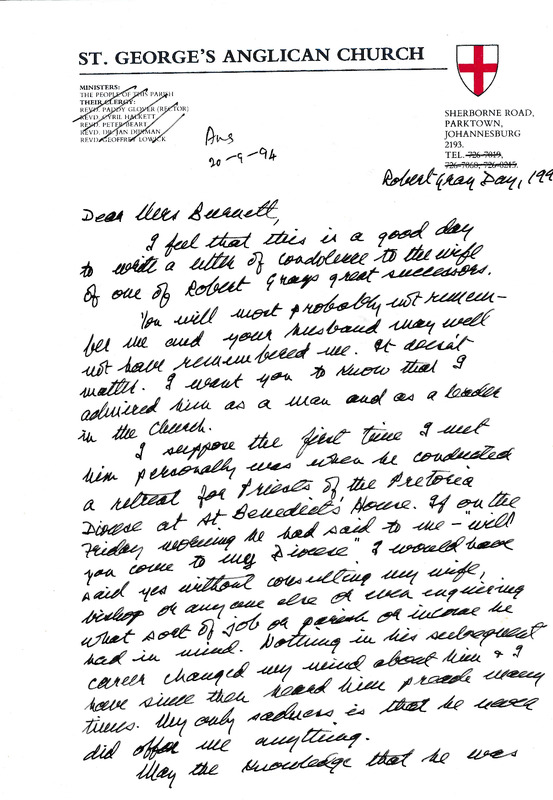 ST. GEORGE'S ANGLICAN CHURCH
MINISTERS:
THE PEOPLE OF THIS PARISH
THEIR CLERGY:
REVD. PADDY GLOVER (RECTOR)
REVD. CYRIL HALKETT
REVD. PETER BEART
REVD. DR. JAN DIJKMAN
REVD. GEOFFREY LOWICK
SHERBORNE ROAD,
PARKTOWN,
JOHANNESBURG
2193.
TEL. 726-7019,
726-7060, 726-0215.
Ans
20-9-94
Robert Gray Day, 199
Dear Mrs Burnett,
I feel that this is a good day
to write a letter of condolence to the wife
of one of Robert Grays great successors.
You will most probably not remem-
ber me and your husband may well
not have remembered me. It doesn't
matter. I want you to know that I
admired him as a man and as a leader
in the Church.
I suppose the first time I met
him personally was when he conducted
a retreat for Priests of the Pretoria
Diocese at St. Benedict's House. If on the
Friday morning he had said to me - "will
you come to my Diocese" I would have
said yes without consulting my wife,
bishop or anyone else or even enquiring
what sort of job or parish or income he
had in mind. Nothing in his subsequent
career changed my mind about him & I
have since then heard him preach many
times. My only sadness is that he never
did offer me anything.
May the knowledge that he was